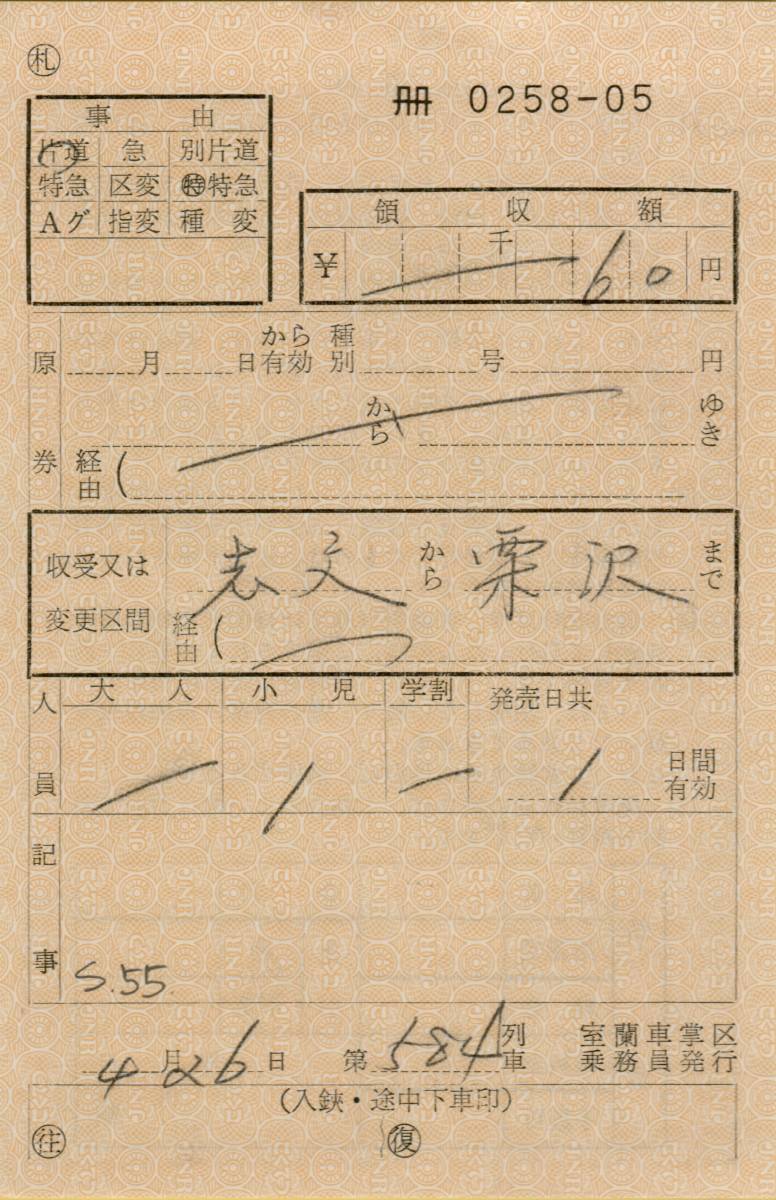 札
冊 0258-05
事 由
片道 急 別片道
特急 区変 特特急
Aグ 指変 種変
領収額
¥ 千 60円
原券
月 日から有効 種別 号 円
から ゆき
経由(
収受又は変更区間
志文から栗沢まで
経由(
人員
大人 小児 学割 発売日共
1 1 日間有効
記事
S.55.
4月26日 第584列車 室蘭車掌区乗務員発行
(入鋏・途中下車印)
往 復